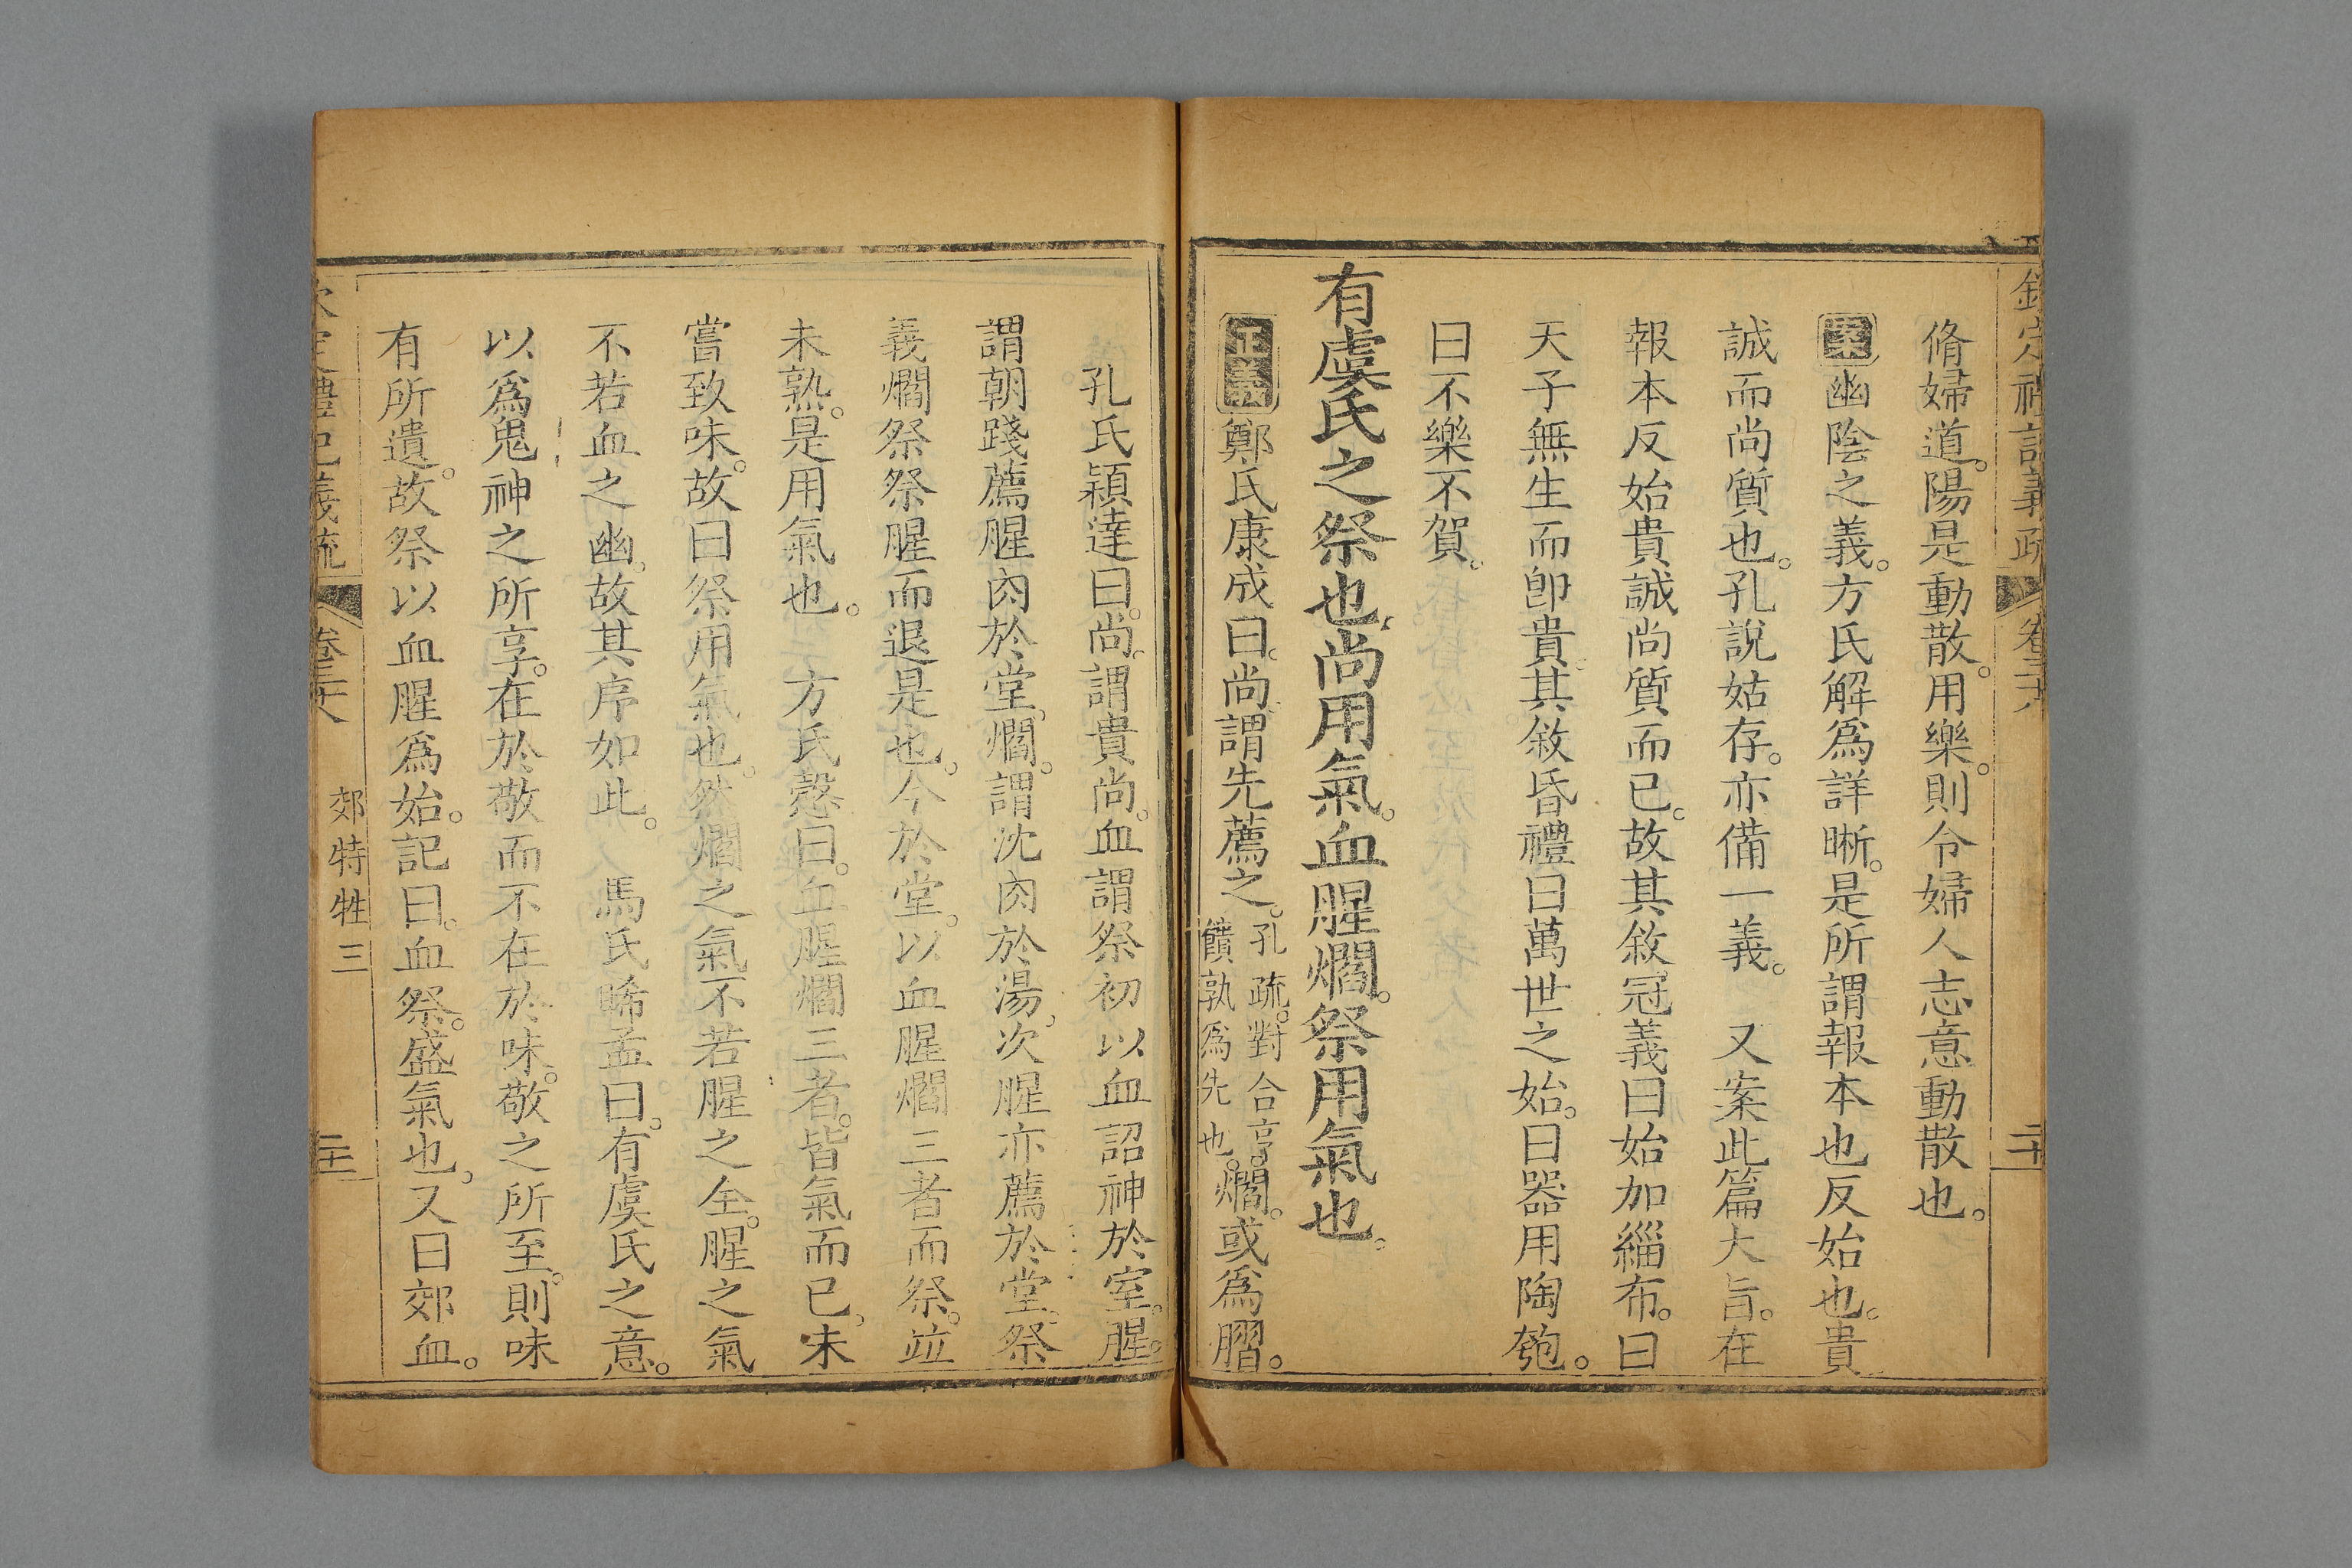 欽定禮記義疏 卷三十六 二十
脩婦道。陽是動散。用樂。則令婦人志意動散也。
案幽陰之義。方氏解爲詳晰。是所謂報本也反始也。貴
誠而尚質也。孔說姑存。亦備一義。 又案此篇大旨。在
報本反始貴誠尚質而已。故其敘冠義曰始加緇布。曰
天子無生而卽貴。其敘昏禮曰萬世之始。曰器用陶匏。
曰不樂不賀。
有虞氏之祭也。尚用氣。血腥爓。祭用氣也。
正義鄭氏康成曰。尚謂先薦之。孔疏。對合亨饋孰爲先也。爓。或爲䐑。
孔氏穎達曰。尚。謂貴尚。血謂祭初以血詔神於室。腥。
謂朝踐薦腥肉於堂。爓。謂沈肉於湯。次腥亦薦於堂。祭
義爓祭祭腥而退是也。今於堂。以血腥爓三者而祭。竝
未熟。是用氣也。 方氏慤曰。血腥爓三者。皆氣而已。未
嘗致味。故曰祭用氣也。然爓之氣不若腥之全。腥之氣
不若血之幽。故其序如此。 馬氏晞孟曰。有虞氏之意。
以爲鬼神之所享。在於敬而不在於味。敬之所至。則味
有所遺。故祭以血腥爲始。記曰。血祭。盛氣也。又曰郊血。
欽定禮記義疏 卷三十六 郊特牲三 二十一